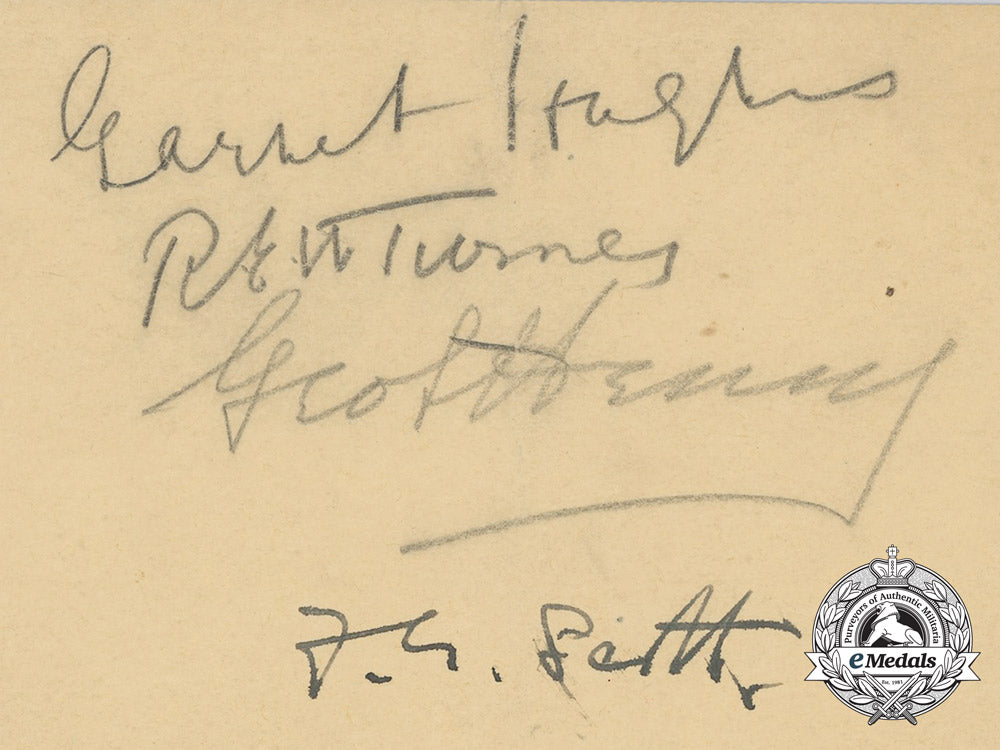 Garnet Hughes
R.E.W Turner
Geo
F. G. Scott.
Purveyors of Authentic Militaria
eMedals
Est. 1981